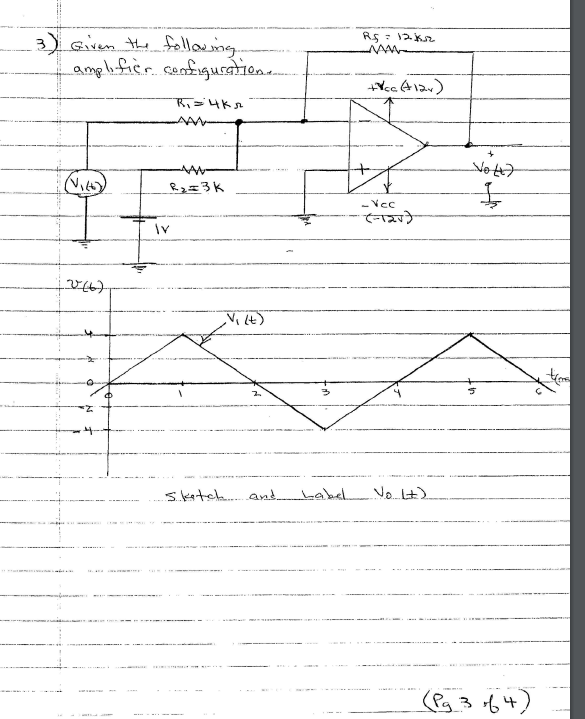 3) Given the following
amplifier configuration.
Rf = 12KΩ
+Vcc (+12v)
R1 = 4KΩ
-
+
V1(t)
R2 = 3K
1V
-Vcc
(-12v)
+
Vo(t)
v(t)
V1(t)
4
2
0
-2
-4
0 1 2 3 4 5 6
Sketch and Label Vo(t)
(Pg 3 of 4)